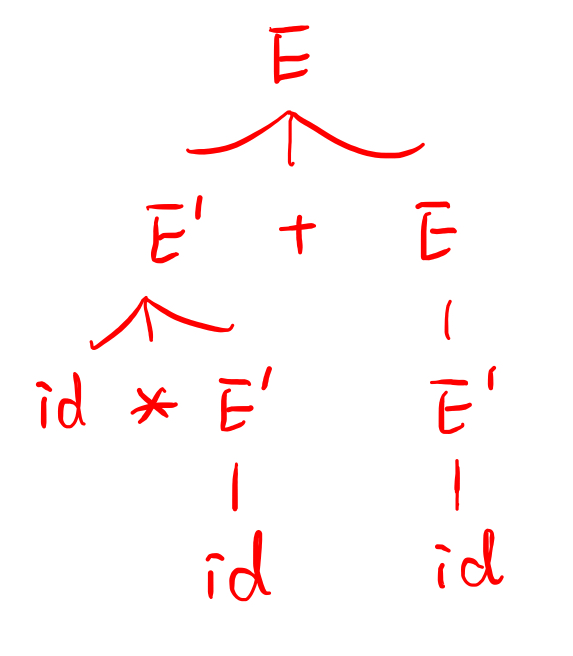 E
E' + E
id * E' E'
id id